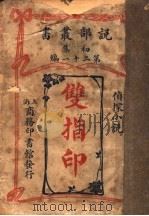 説部叢書
初集
第三十一編
偵探小説
雙指印
上海
商務印書館發行